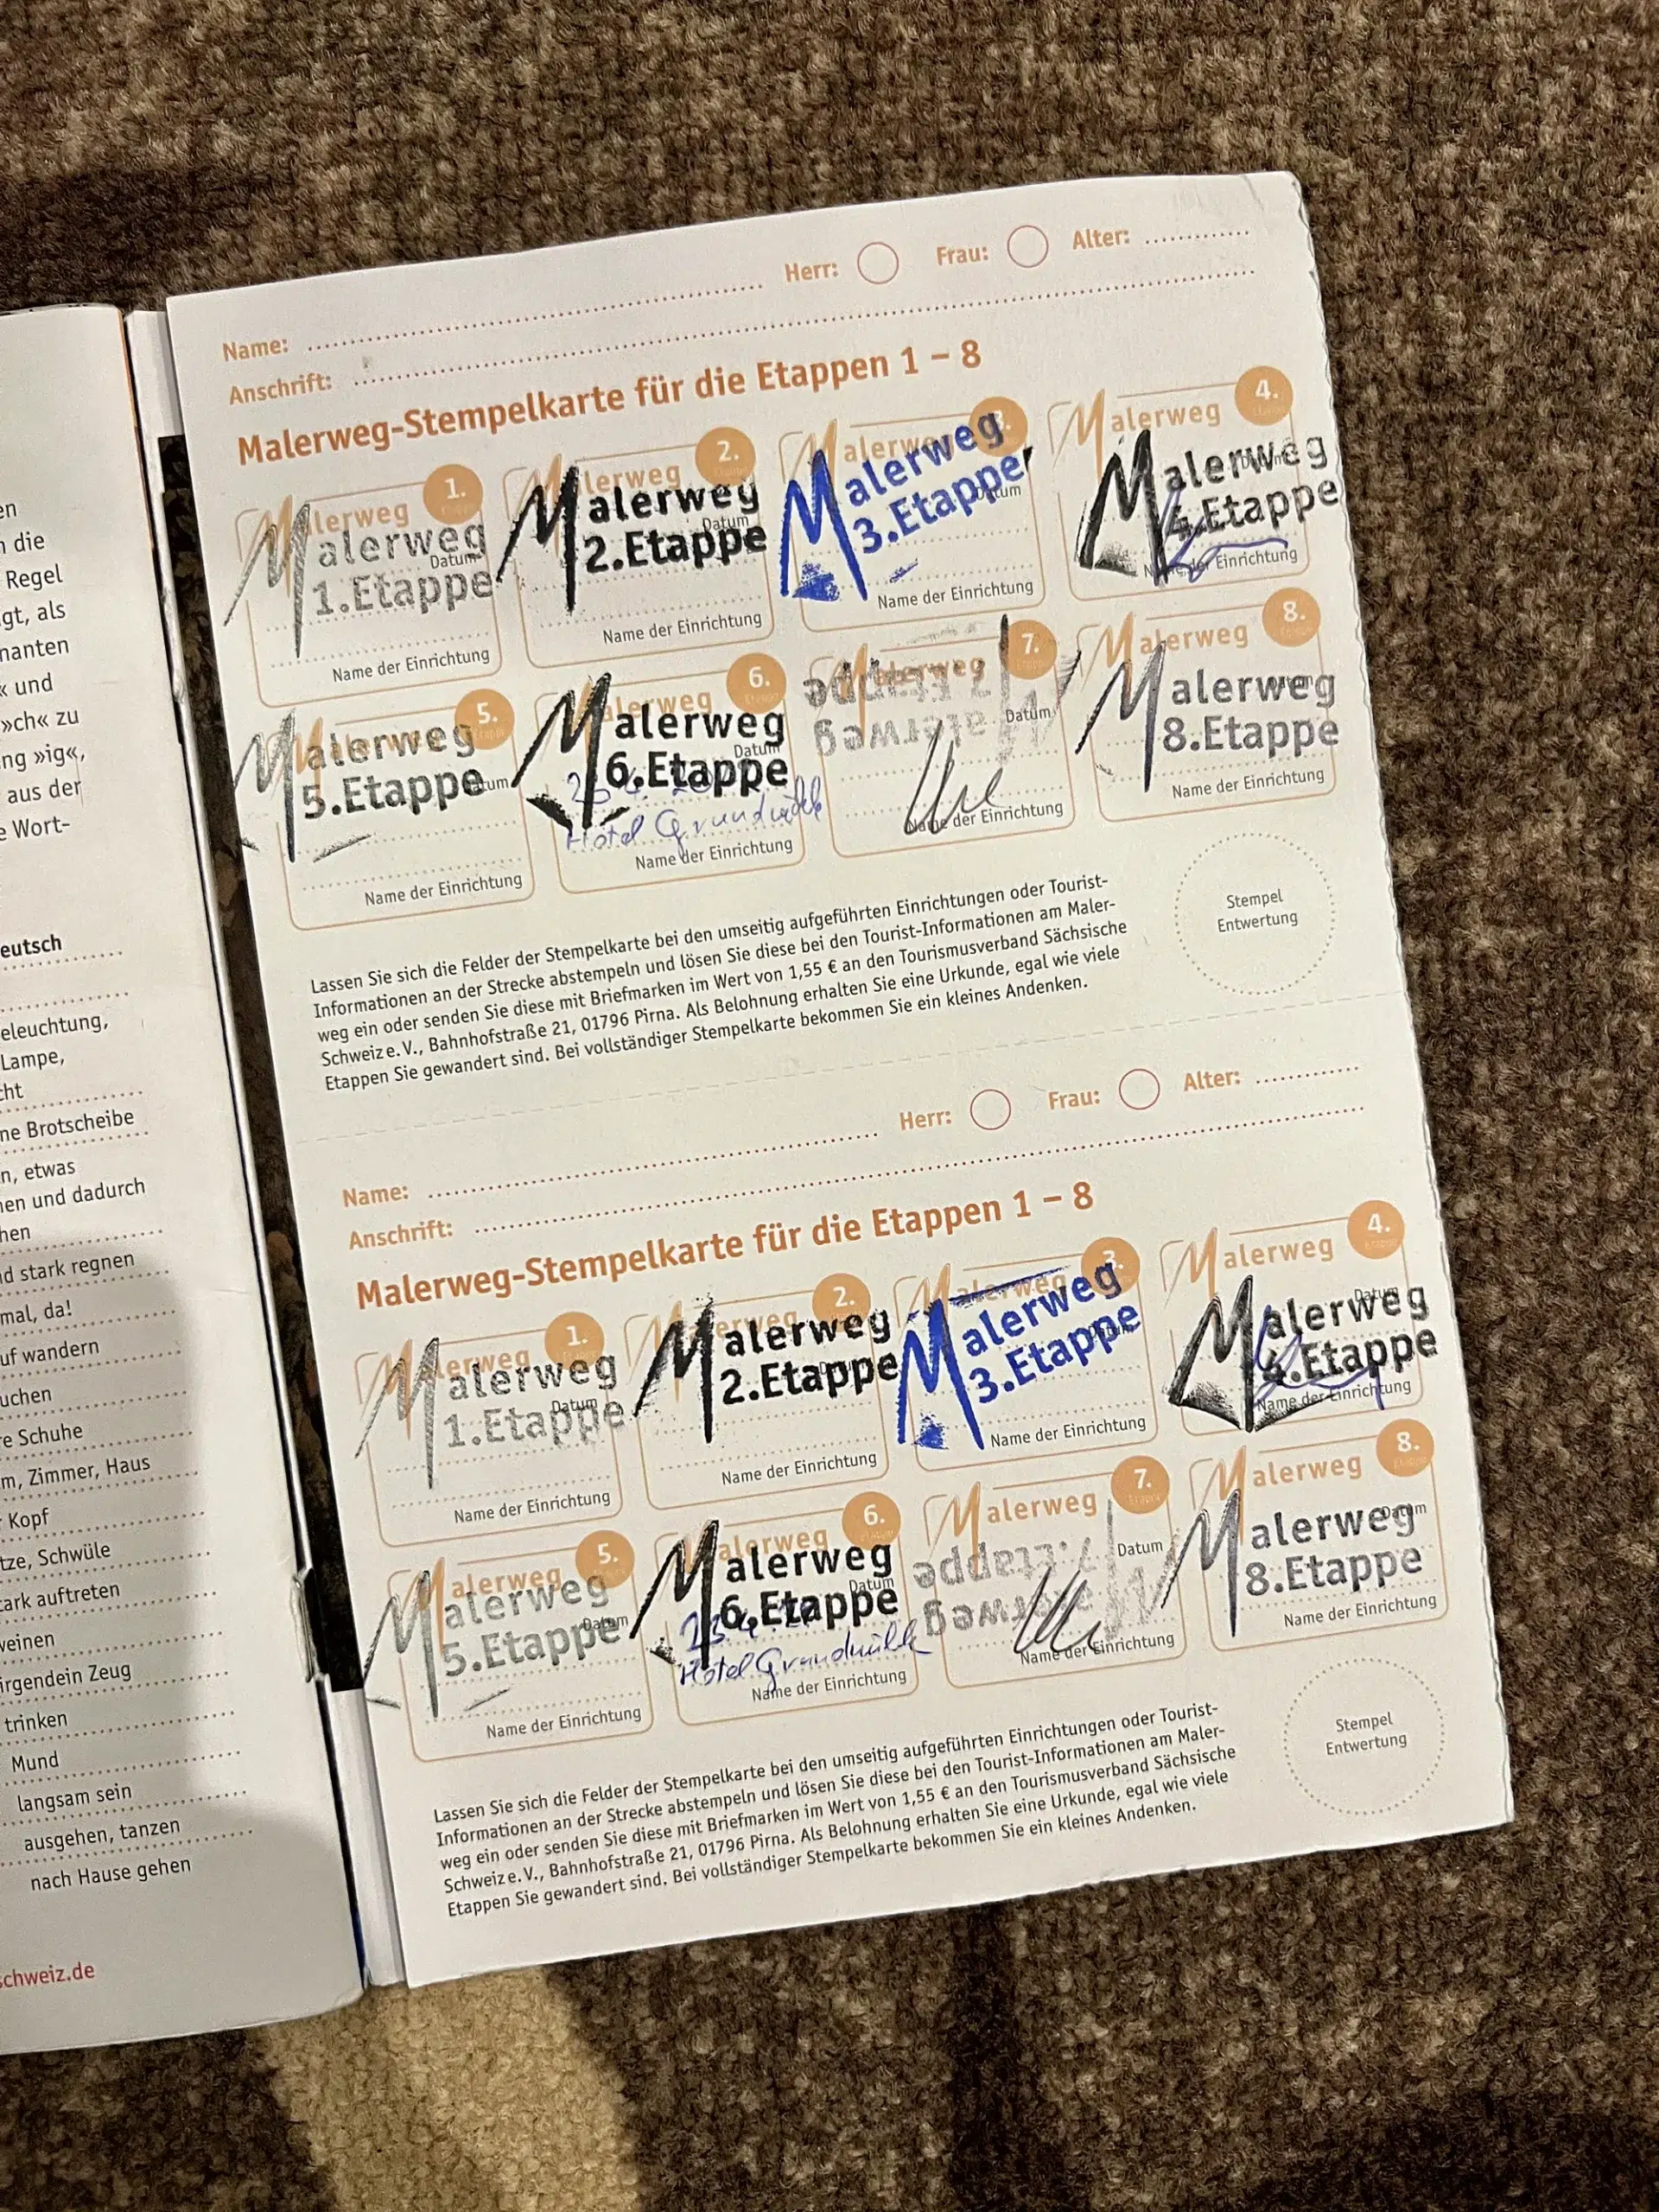 en
die
Regel
gt, als
nanten
« und
»ch« zu
ng »ig«,
aus der
e Wort-
eutsch
eleuchtung,
Lampe,
cht
ne Brotscheibe
n, etwas
hen und dadurch
hen
d stark regnen
mal, da!
uf wandern
uchen
re Schuhe
m, Zimmer, Haus
Kopf
tze, Schwüle
ark auftreten
weinen
irgendein Zeug
trinken
Mund
langsam sein
ausgehen, tanzen
nach Hause gehen
schweiz.de
Herr: Frau: Alter:
Name:
Anschrift:
Malerweg-Stempelkarte für die Etappen 1 – 8
Malerweg 1.
Malerweg
Datum
1.Etappe
Name der Einrichtung
Malerweg 2.
Malerweg
Datum
2.Etappe
Name der Einrichtung
Malerweg 3.
Malerweg
Datum
3.Etappe
Name der Einrichtung
Malerweg 4.
Malerweg
Datum
4.Etappe
Name der Einrichtung
Malerweg 5.
Malerweg
Datum
5.Etappe
Name der Einrichtung
Malerweg 6.
Malerweg
Datum
6.Etappe
Hotel Grundmühle
Name der Einrichtung
Malerweg 7.
7.Etappe
Malerweg
Datum
Name der Einrichtung
Malerweg 8.
Malerweg
Datum
8.Etappe
Name der Einrichtung
Lassen Sie sich die Felder der Stempelkarte bei den umseitig aufgeführten Einrichtungen oder Tourist-
Informationen an der Strecke abstempeln und lösen Sie diese bei den Tourist-Informationen am Maler-
weg ein oder senden Sie diese mit Briefmarken im Wert von 1,55 € an den Tourismusverband Sächsische
Schweiz e. V., Bahnhofstraße 21, 01796 Pirna. Als Belohnung erhalten Sie eine Urkunde, egal wie viele
Etappen Sie gewandert sind. Bei vollständiger Stempelkarte bekommen Sie ein kleines Andenken.
Stempel
Entwertung
Herr: Frau: Alter:
Name:
Anschrift:
Malerweg-Stempelkarte für die Etappen 1 – 8
Malerweg 1.
Malerweg
Datum
1.Etappe
Name der Einrichtung
Malerweg 2.
Malerweg
Datum
2.Etappe
Name der Einrichtung
Malerweg 3.
Malerweg
Datum
3.Etappe
Name der Einrichtung
Malerweg 4.
Malerweg
Datum
4.Etappe
Name der Einrichtung
Malerweg 5.
Malerweg
Datum
5.Etappe
Name der Einrichtung
Malerweg 6.
Malerweg
Datum
6.Etappe
Hotel Grundmühle
Name der Einrichtung
Malerweg 7.
Datum
7.Etappe
Malerweg
Name der Einrichtung
Malerweg 8.
Malerweg
Datum
8.Etappe
Name der Einrichtung
Lassen Sie sich die Felder der Stempelkarte bei den umseitig aufgeführten Einrichtungen oder Tourist-
Informationen an der Strecke abstempeln und lösen Sie diese bei den Tourist-Informationen am Maler-
weg ein oder senden Sie diese mit Briefmarken im Wert von 1,55 € an den Tourismusverband Sächsische
Schweiz e. V., Bahnhofstraße 21, 01796 Pirna. Als Belohnung erhalten Sie eine Urkunde, egal wie viele
Etappen Sie gewandert sind. Bei vollständiger Stempelkarte bekommen Sie ein kleines Andenken.
Stempel
Entwertung